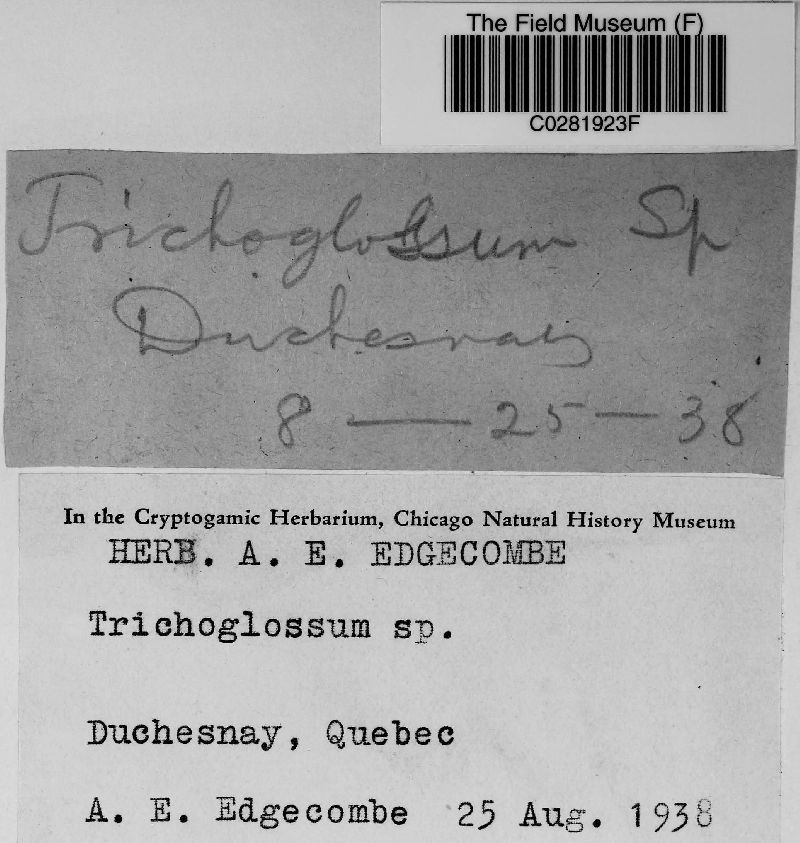 The Field Museum (F)
C0281923F
Trichoglossum Sp
Duchesnay
8 — 25 — 38
In the Cryptogamic Herbarium, Chicago Natural History Museum
HERB. A. E. EDGECOMBE
Trichoglossum sp.
Duchesnay, Quebec
A. E. Edgecombe 25 Aug. 1938